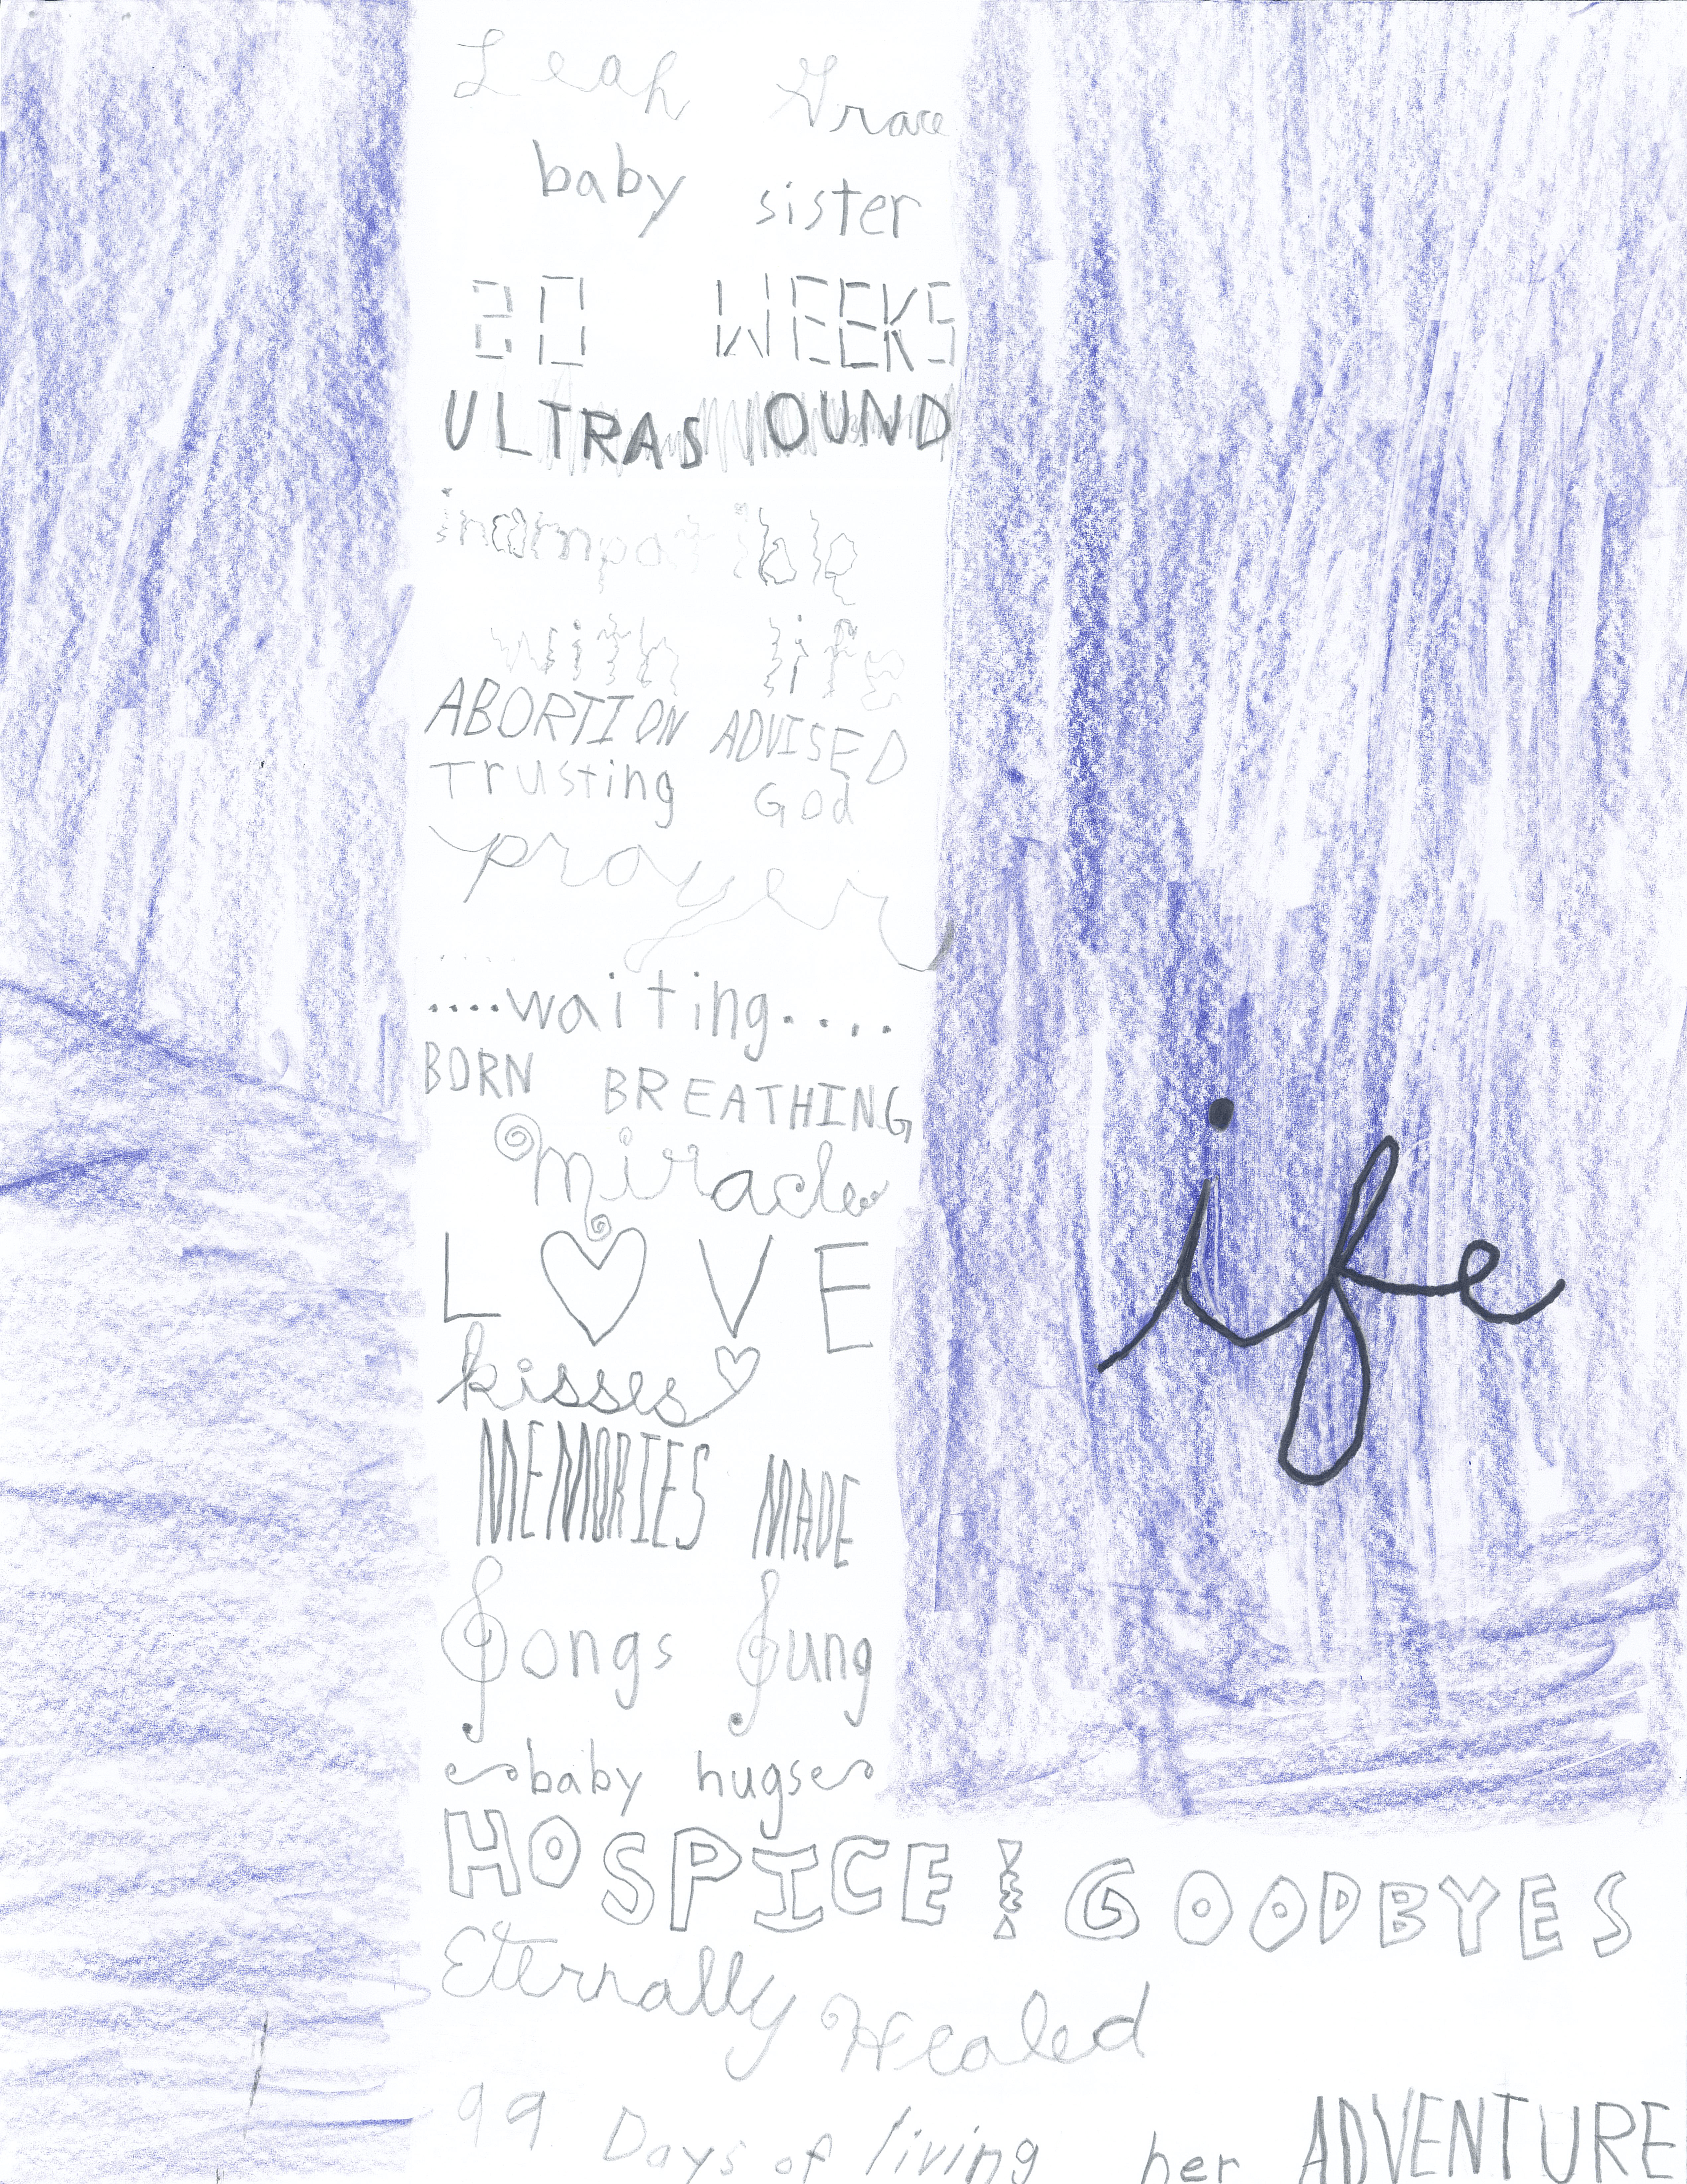 Leah Grace
baby sister
20 WEEKS
ULTRASOUND
incompatible
with life
ABORTION ADVISED
Trusting God
prayer
....waiting....
BORN BREATHING
miracle
LOVE
kisses
MEMORIES MADE
Songs Sung
baby hugs
HOSPICE! GOODBYES
Eternally Healed
99 Days of living her ADVENTURE
ife